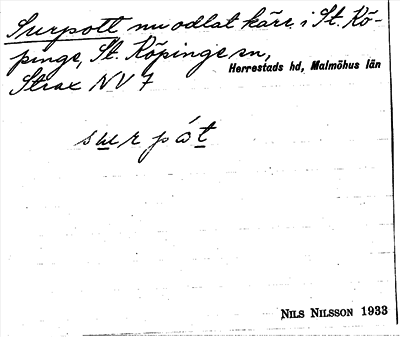 Surpott nu odlat kärr i St. Kö-
pinge, St. Köpinge sn,
Herrestads hd, Malmöhus län
Strax NV 7
surpót
NILS NILSSON 1933